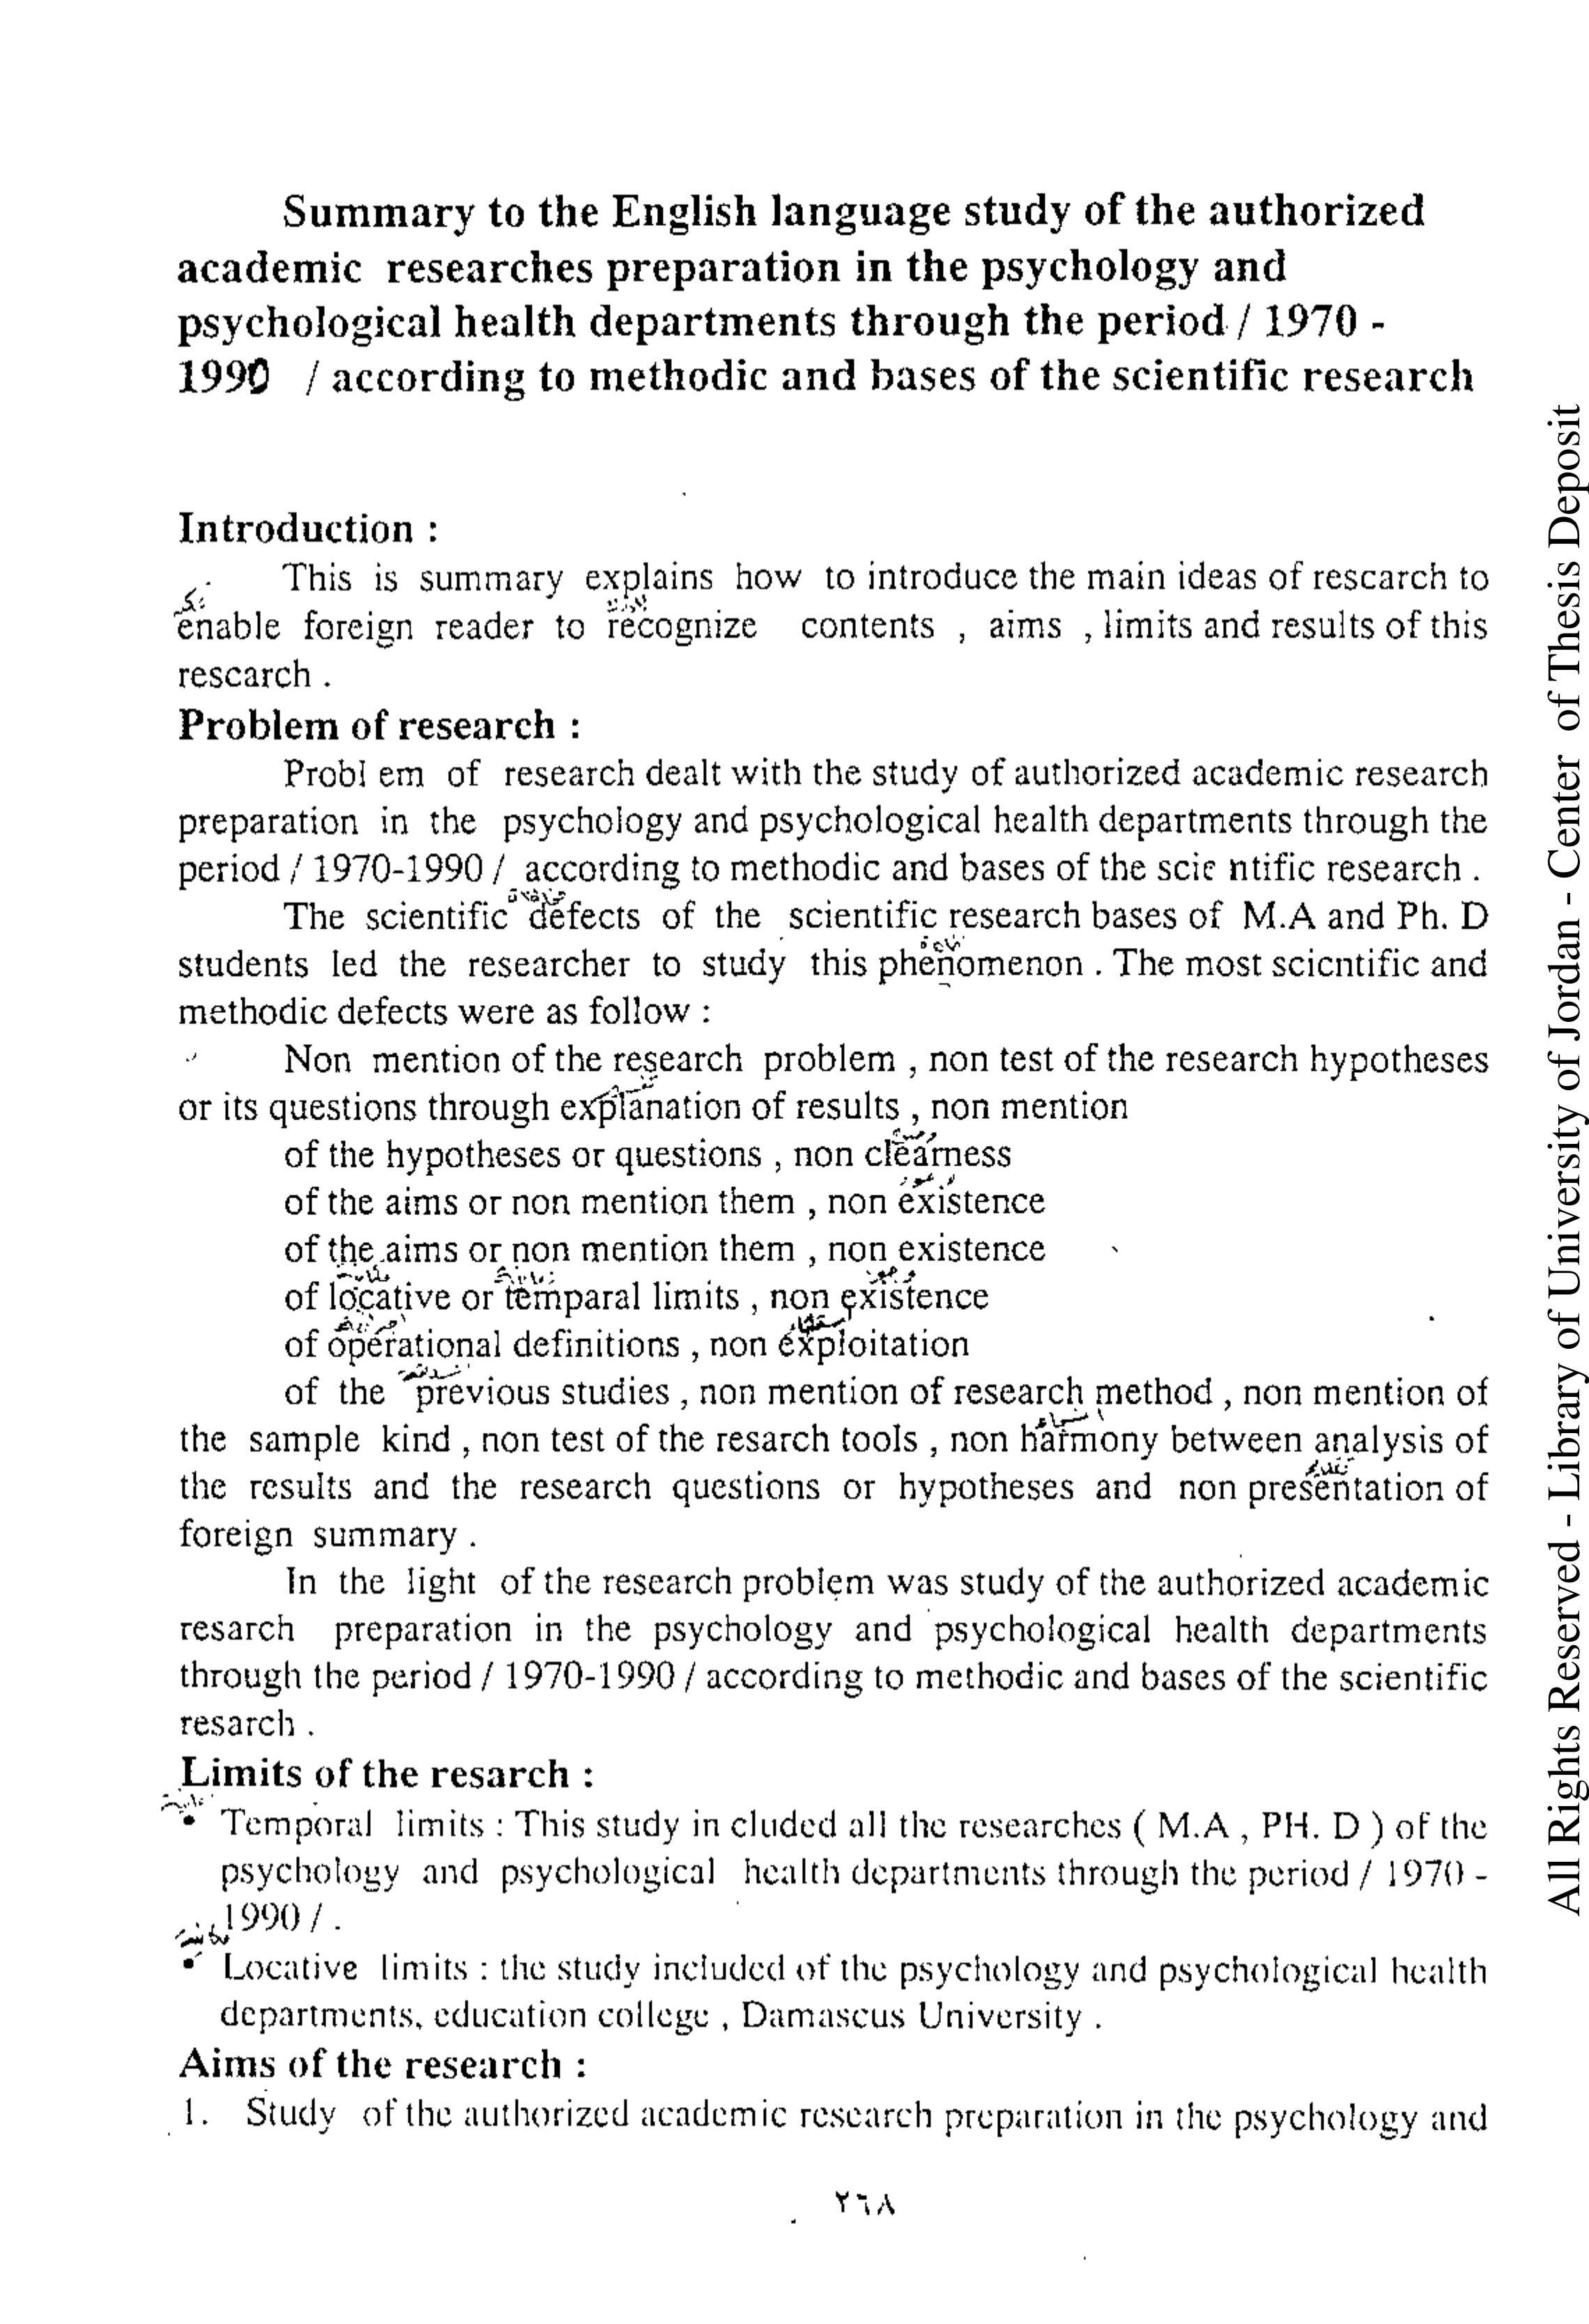 Summary to the English language study of the authorized
academic researches preparation in the psychology and
psychological health departments through the period / 1970 -
1990 / according to methodic and bases of the scientific research
Introduction :
This is summary explains how to introduce the main ideas of research to
enable foreign reader to recognize contents , aims , limits and results of this
research .
Problem of research :
Probl em of research dealt with the study of authorized academic research
preparation in the psychology and psychological health departments through the
period / 1970-1990 / according to methodic and bases of the scie ntific research .
The scientific defects of the scientific research bases of M.A and Ph. D
students led the researcher to study this phenomenon . The most scientific and
methodic defects were as follow :
Non mention of the research problem , non test of the research hypotheses
or its questions through explanation of results , non mention
of the hypotheses or questions , non clearness
of the aims or non mention them , non existence
of the aims or non mention them , non existence
of locative or temparal limits , non existence
of operational definitions , non exploitation
of the previous studies , non mention of research method , non mention of
the sample kind , non test of the resarch tools , non harmony between analysis of
the results and the research questions or hypotheses and non presentation of
foreign summary .
In the light of the research problem was study of the authorized academic
resarch preparation in the psychology and psychological health departments
through the period / 1970-1990 / according to methodic and bases of the scientific
resarch .
Limits of the resarch :
• Temporal limits : This study in cluded all the researches ( M.A , PH. D ) of the
psychology and psychological health departments through the period / 1970 -
1990 / .
• Locative limits : the study included of the psychology and psychological health
departments, education college , Damascus University .
Aims of the research :
1. Study of the authorized academic research preparation in the psychology and
٢٦٨
All Rights Reserved - Library of University of Jordan - Center of Thesis Deposit